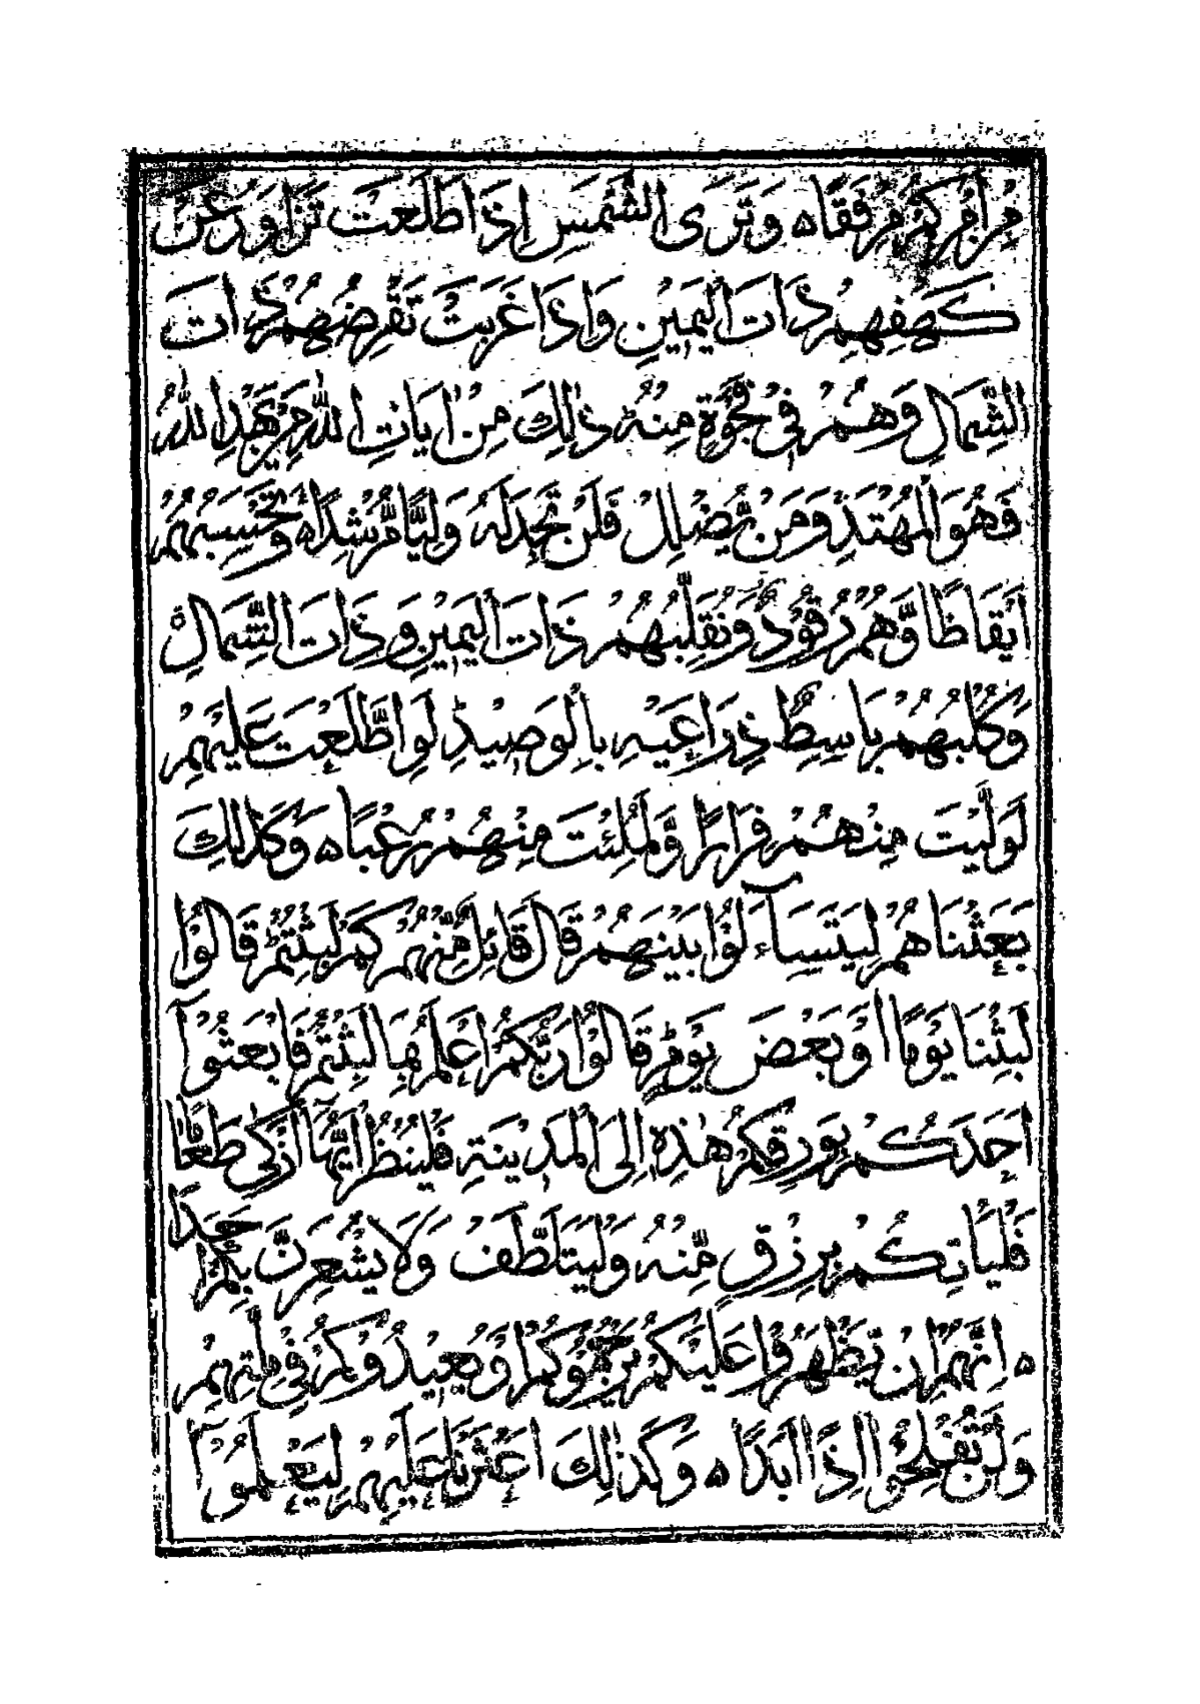 مِّنْ اَمْرِكُمْ مِّرْفَقًا ه وَتَرَى الشَّمْسَ اِذَا طَلَعَتْ تَزَاوَرُ عَنْ
كَهْفِهِمْ ذَاتَ الْيَمِيْنِ وَاِذَا غَرَبَتْ تَّقْرِضُهُمْ ذَاتَ
الشِّمَالِ وَهُمْ فِيْ فَجْوَةٍ مِنْهُ ط ذٰلِكَ مِنْ اٰيَاتِ اللّٰهِ مَنْ يَّهْدِ اللّٰهُ
فَهُوَ الْمُهْتَدِ وَمَنْ يُّضْلِلْ فَلَنْ تَجِدَ لَهُ وَلِيًّا مُّرْشِدًا ه وَتَحْسَبُهُمْ
اَيْقَاظًا وَّهُمْ رُقُوْدٌ وَّنُقَلِّبُهُمْ ذَاتَ الْيَمِيْنِ وَذَاتَ الشِّمَالِ
وَكَلْبُهُمْ بَاسِطٌ ذِرَاعَيْهِ بِالْوَصِيْدِ ط لَوِ اطَّلَعْتَ عَلَيْهِمْ
لَوَلَّيْتَ مِنْهُمْ فِرَارًا وَّلَمُلِئْتَ مِنْهُمْ رُعْبًا ه وَكَذٰلِكَ
بَعَثْنَاهُمْ لِيَتَسَآءَلُوْا بَيْنَهُمْ قَالَ قَائِلٌ مِّنْهُمْ كَمْ لَبِثْتُمْ ط قَالُوْا
لَبِثْنَا يَوْمًا اَوْ بَعْضَ يَوْمٍ ط قَالُوْا رَبُّكُمْ اَعْلَمُ بِمَا لَبِثْتُمْ فَابْعَثُوْآ
اَحَدَكُمْ بِوَرِقِكُمْ هٰذِهِ اِلَى الْمَدِيْنَةِ فَلْيَنْظُرْ اَيُّهَآ اَزْكٰى طَعَامًا
فَلْيَاْتِكُمْ بِرِزْقٍ مِّنْهُ وَلْيَتَلَطَّفْ وَلَا يُشْعِرَنَّ بِكُمْ اَحَدًا
ه اِنَّهُمْ اِنْ يَّظْهَرُوْا عَلَيْكُمْ يَرْجُمُوْكُمْ اَوْ يُعِيْدُوْكُمْ فِيْ مِلَّتِهِمْ
وَلَنْ تُفْلِحُوْا اِذًا اَبَدًا ه وَكَذٰلِكَ اَعْثَرْنَا عَلَيْهِمْ لِيَعْلَمُوْآ